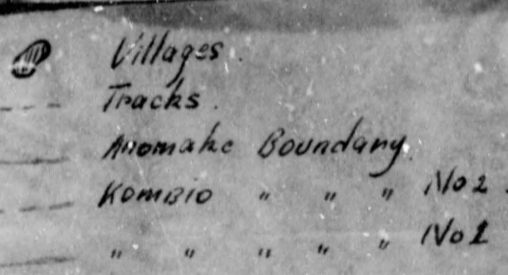 Villages.
Tracks.
Anomake Boundary.
KOMBIO " " " No 2.
" " " " " No 1